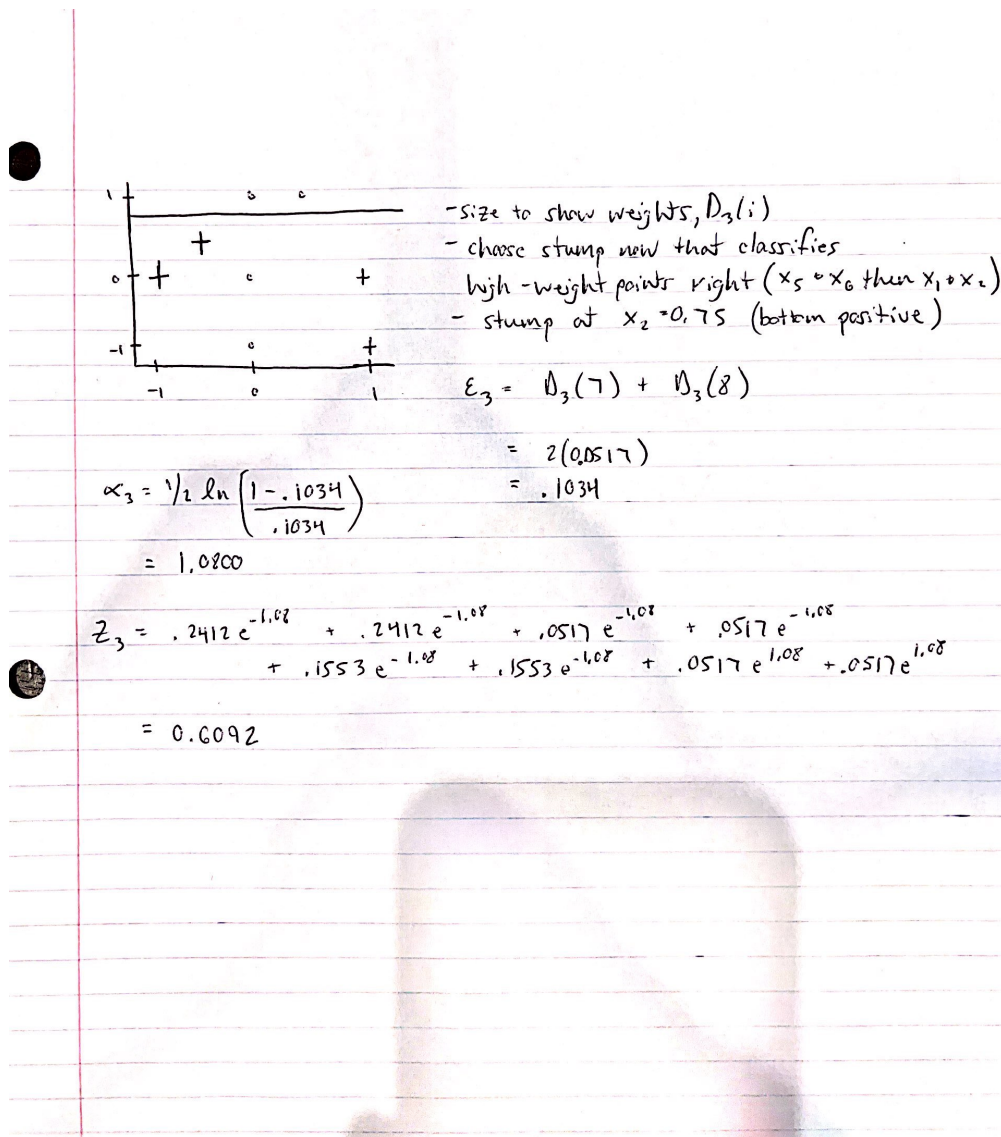 1 o o
- size to show weights, D₃(i)
+
- choose stump now that classifies
0 + o +
high-weight points right (x₅ & x₆ then x₁ & x₂)
- stump at x₂ = 0.75 (bottom positive)
-1 o +
-1 0 1
ε₃ = D₃(7) + D₃(8)
= 2(0.0517)
= .1034
α₃ = 1/2 ln((1 - .1034)/.1034)
= 1.0800
Z₃ = .2412 e^-1.08 + .2412 e^-1.08 + .0517 e^-1.08 + .0517 e^-1.08
+ .1553 e^-1.08 + .1553 e^-1.08 + .0517 e^1.08 + .0517 e^1.08
= 0.6092